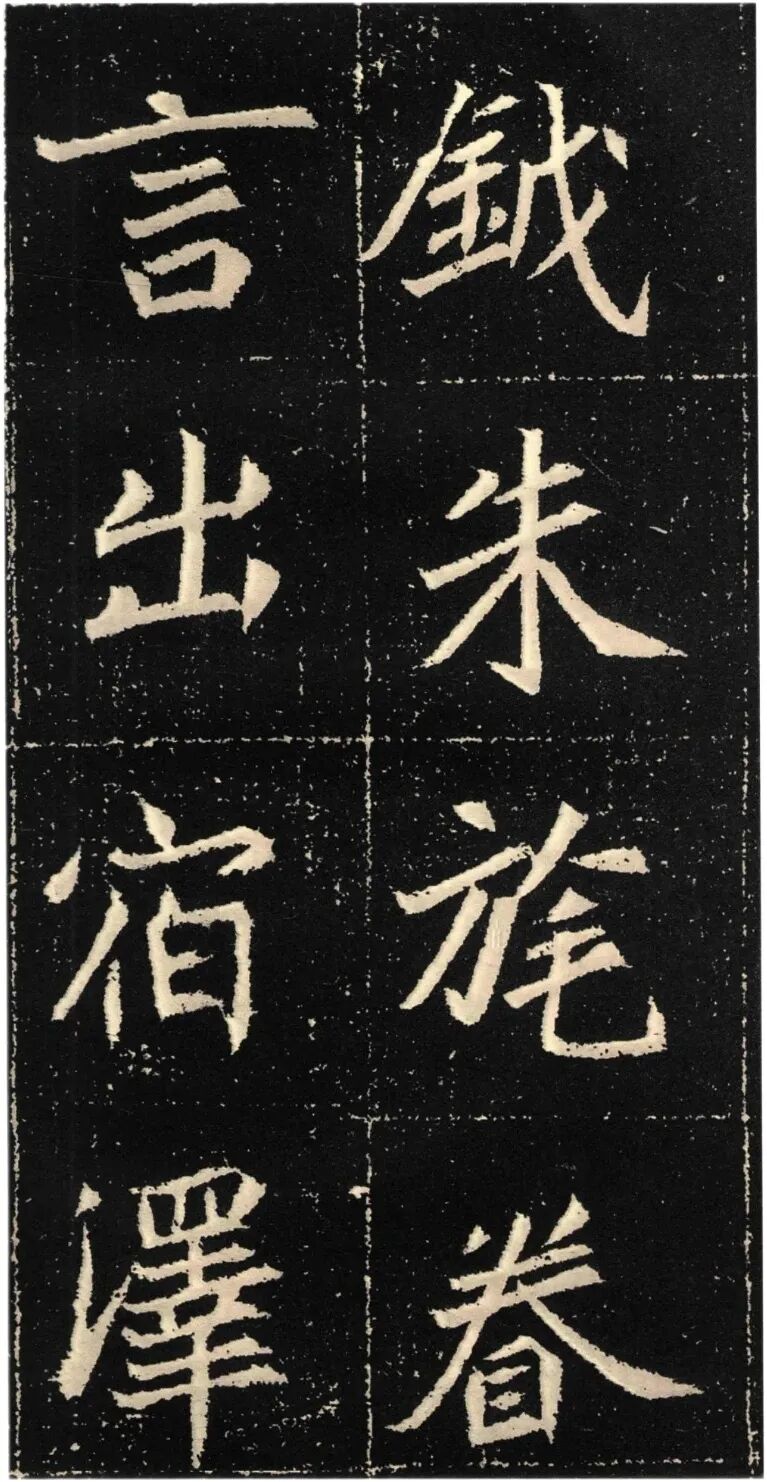 鉞朱旄眷
言出宿澤